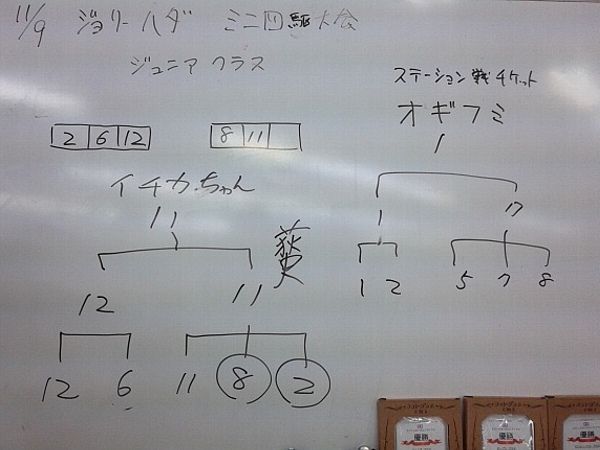 11/9 ジョリーハダ ミニ四駆大会
ジュニアクラス
ステーション戦チケット
オギフミ
2 6 12
8 11
1
イチカちゃん
11
1 7
荻史
1 2 5 7 8
12 11
12 6 11 8 2
優勝 優勝 優勝